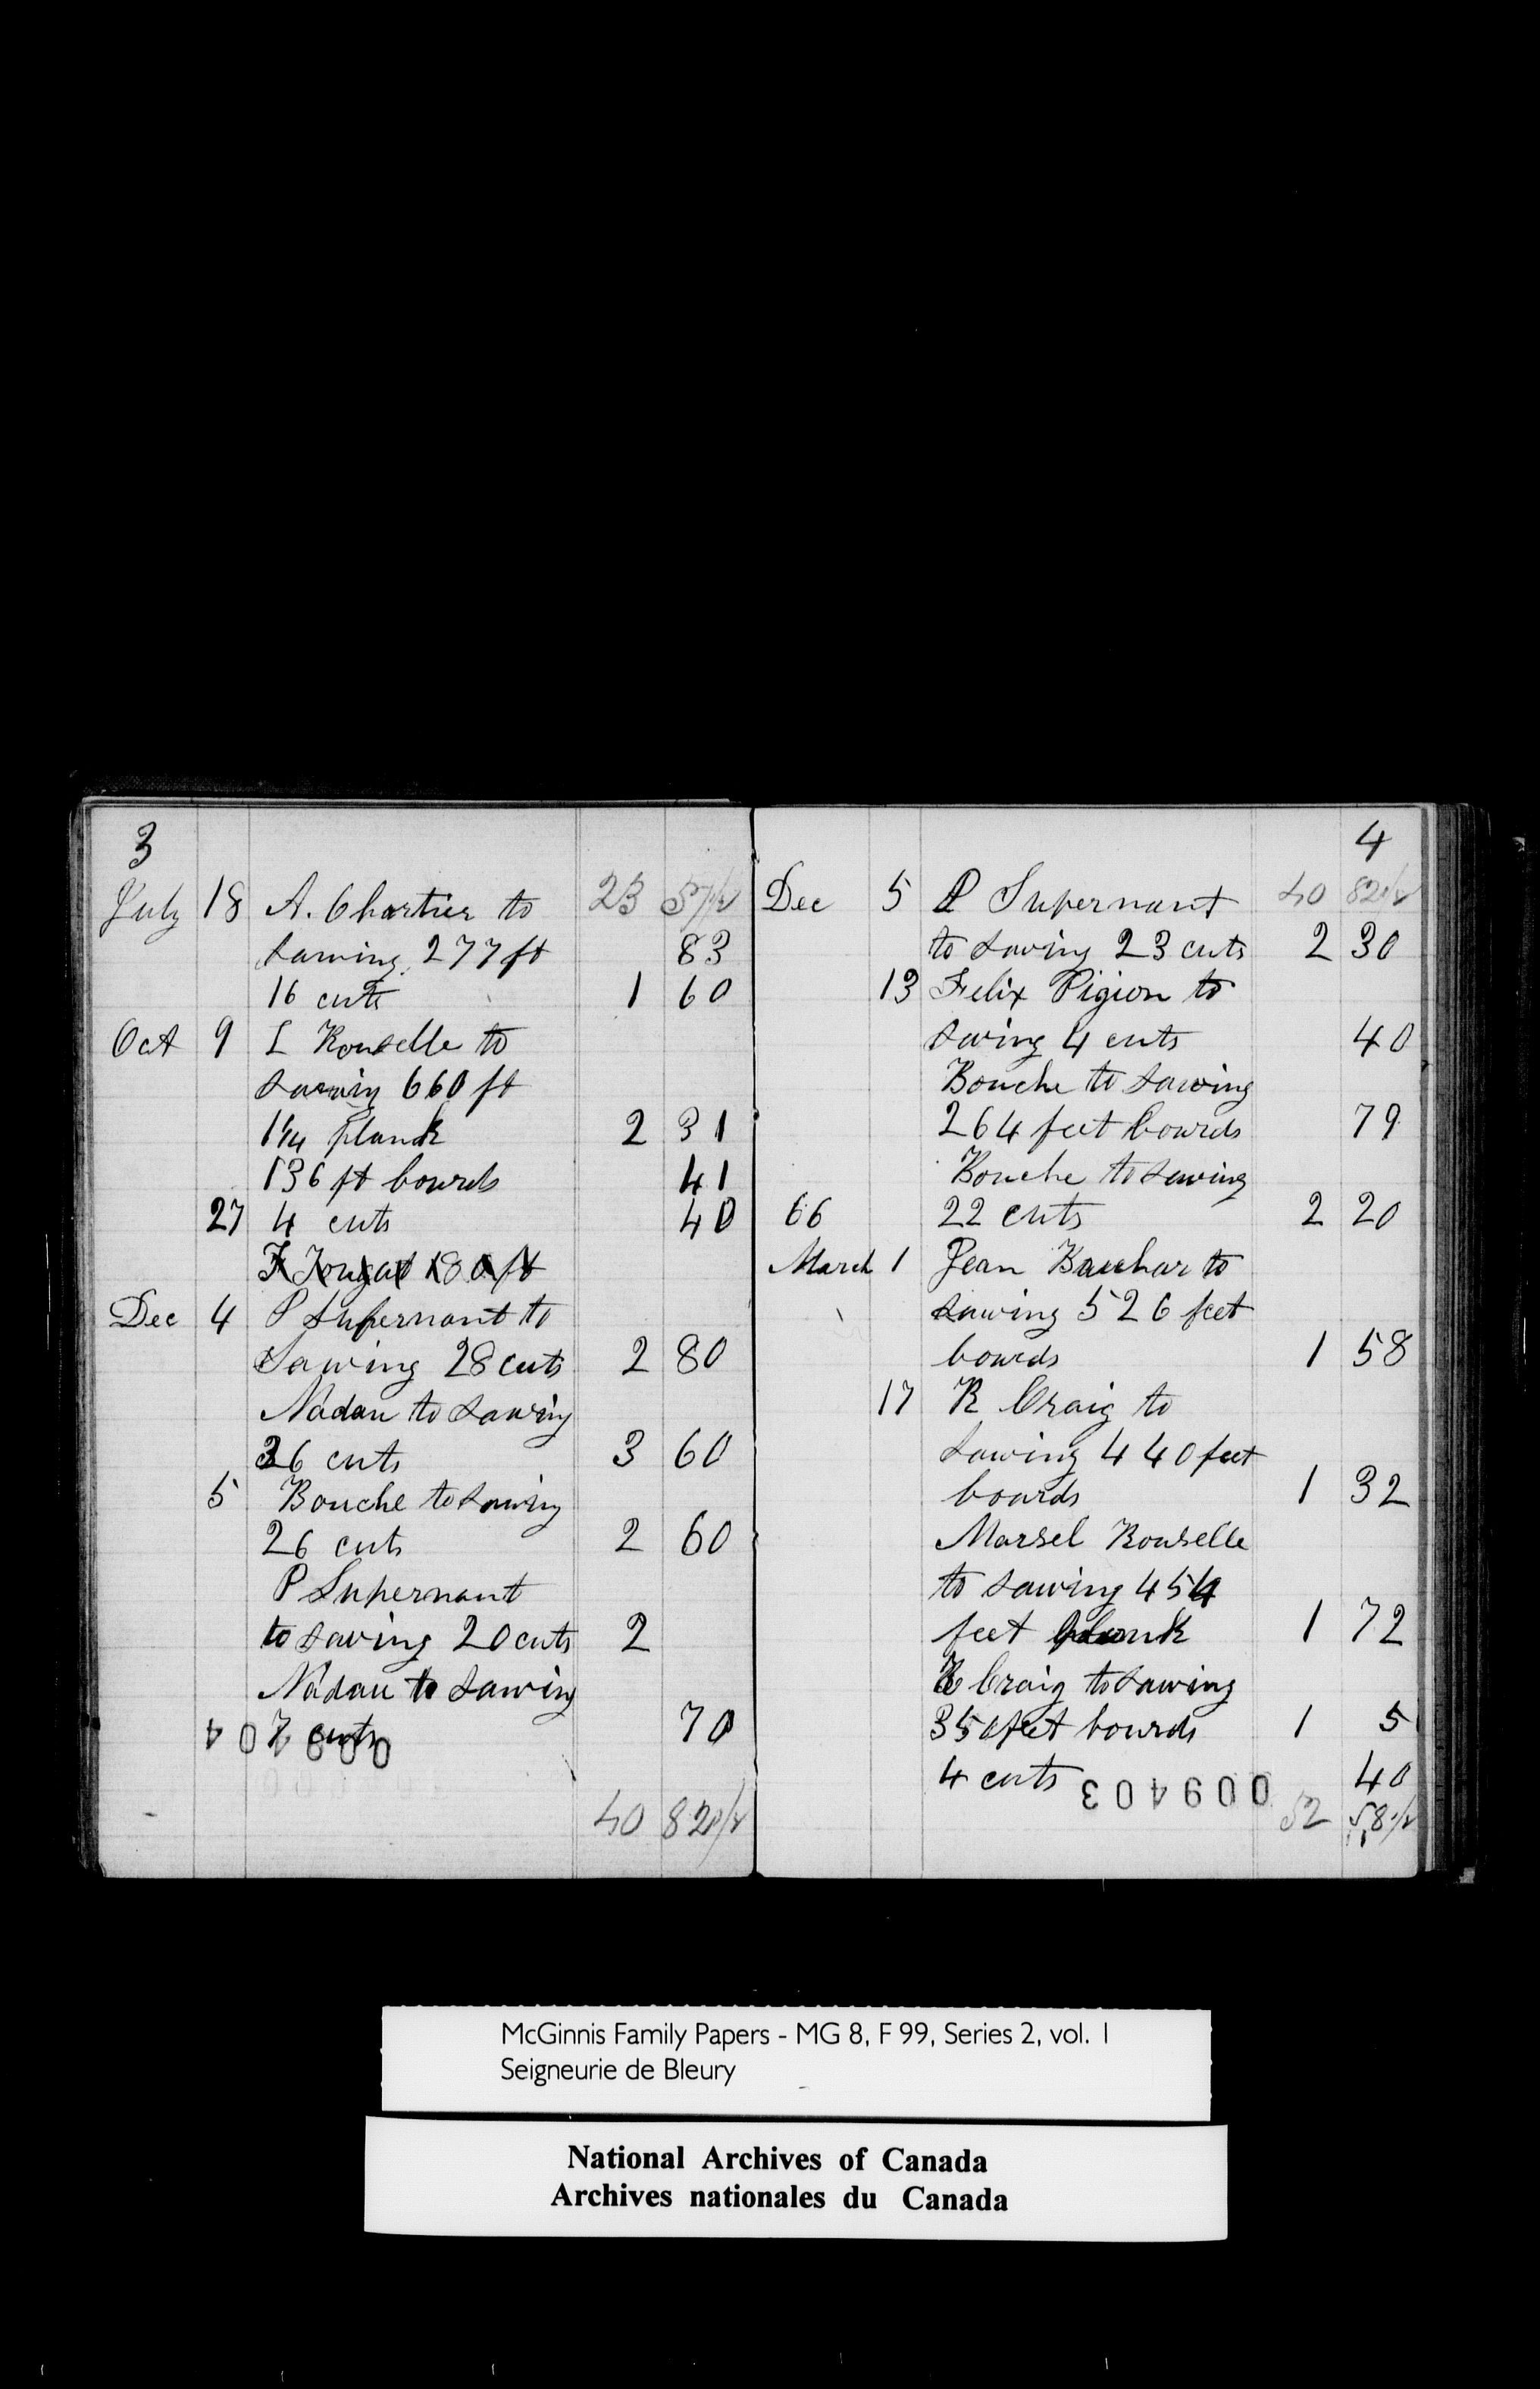 3
July 18 A. Chartier to 23 57 1/2
sawing 277 ft 83
16 cuts 1 60
Oct 9 L Rouselle to
sawin 660 ft
1 1/4 plank 2 31
136 ft bourds 41
27 4 cuts 40
180 ft
Dec 4 P Supernant to
Sawing 28 cuts 2 80
Nadau to sawing
36 cuts 3 60
5 Bouche to sawing
26 cuts 2 60
P Supernant
to saving 20 cuts 2
Nadau to sawing
7 cuts 70
40 82 1/2
4
Dec 5 P Supernant 40 82 1/2
to saving 23 cuts 2 30
13 Felix Pigion to
swing 4 cuts 40
Bouche to sawing
264 feet bourds 79
Bouche to sawing
66 22 cuts 2 20
March 1 Jean Bauchar to
sawing 526 feet
bourds 1 58
17 R Craig to
sawing 440 feet
bourds 1 32
Marsel Rouselle
to sawing 454
feet plank 1 72
R Craig to sawing
350 feet bourds 1 5
4 cuts 40
009403
52 58 1/2
McGinnis Family Papers - MG 8, F 99, Series 2, vol. 1
Seigneurie de Bleury
National Archives of Canada
Archives nationales du Canada